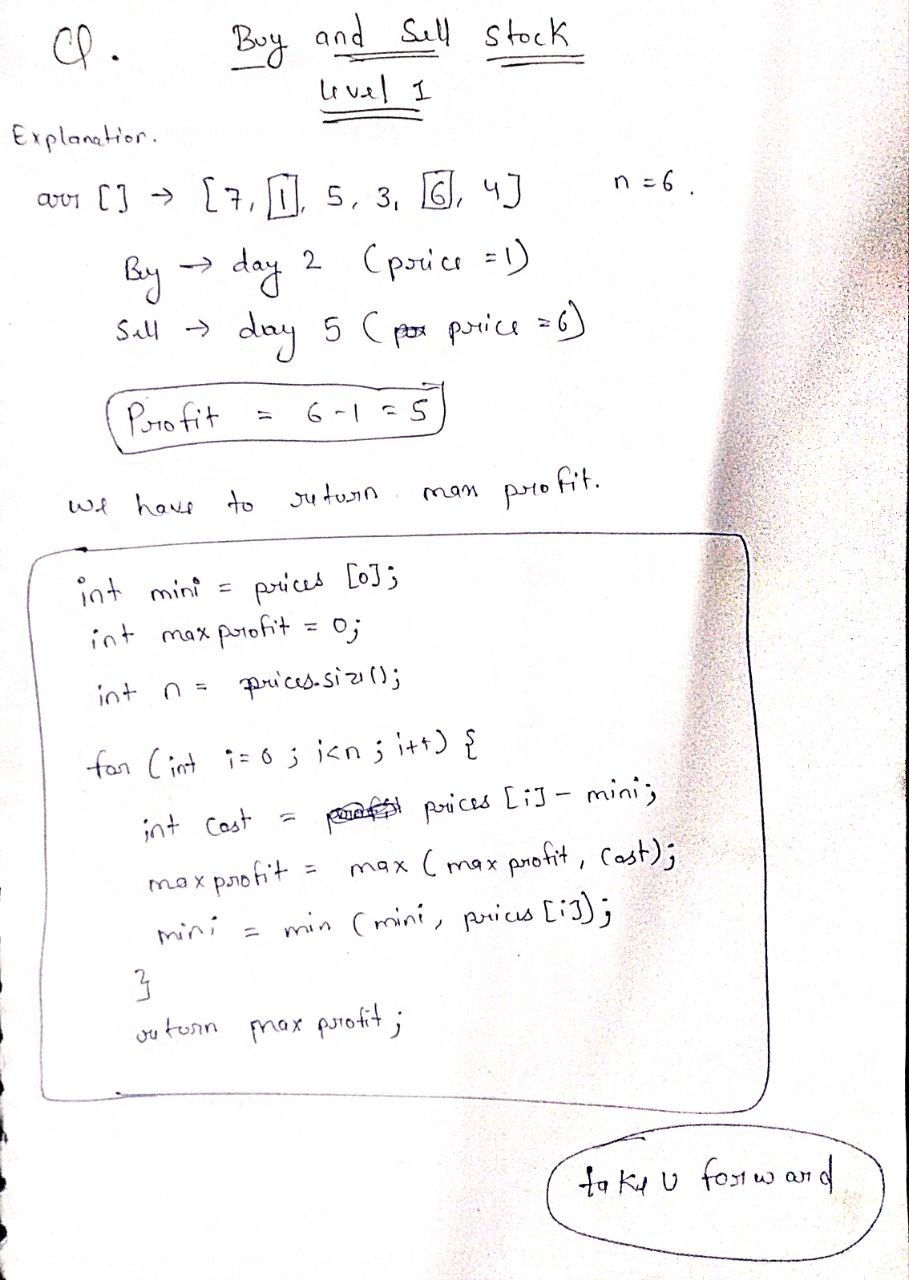 Q. Buy and Sell Stock
Level I
Explanation.
arr [] → [7, 1, 5, 3, 6, 4] n = 6.
By → day 2 (price = 1)
Sell → day 5 ( price = 6)
Profit = 6 - 1 = 5
we have to return max profit.
int mini = prices [0];
int maxprofit = 0;
int n = prices.size();
for (int i = 0 ; i<n ; i++) {
int cost = prices [i] - mini;
maxprofit = max (maxprofit, cost);
mini = min (mini, prices [i]);
}
return maxprofit;
take U forward